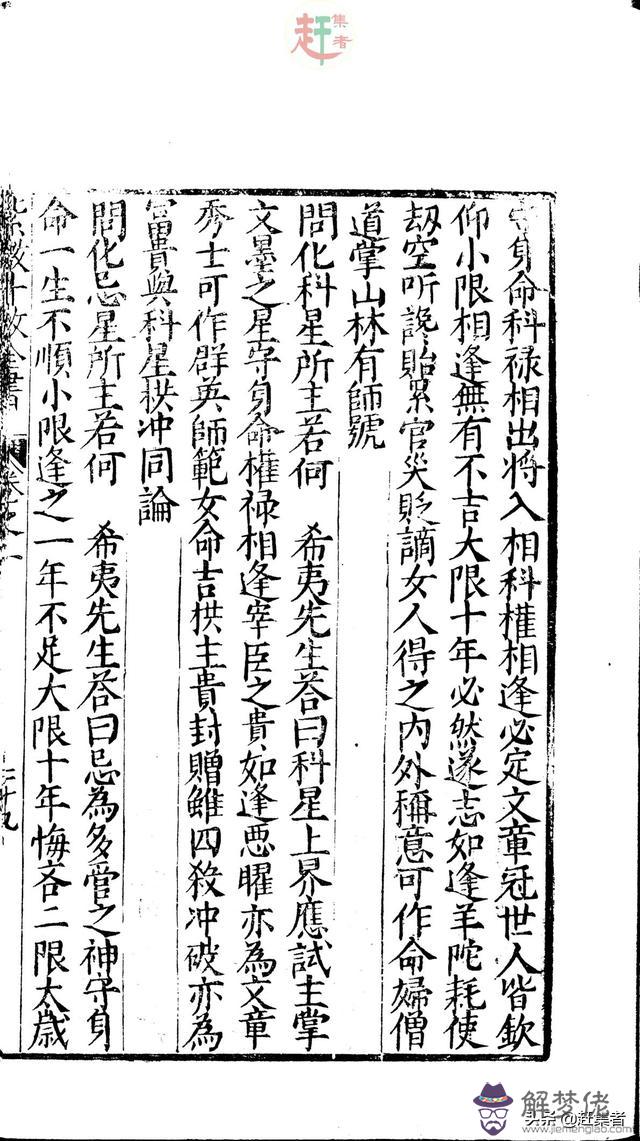 赶集者
守身命科禄相出将入相科權相逢必定文章冠世人皆欽
仰小限相逢無有不吉大限十年必然遂志如逢羊陀耗使
刼空听讒貽累官災貶謫女人得之内外稱意可作命婦僧
道掌山林有師號
問化科星所主若何　希夷先生荅曰科星上界應試主掌
文墨之星守身命權禄相逢宰臣之貴如逢惡曜亦為文章
秀士可作群英師範女命吉拱主貴封贈雖四殺冲破亦為
富貴與科星拱冲同論
問化忌星所主若何　希夷先生荅曰忌為多管之神守身
命一生不順小限逢之一年不足大限十年悔吝二限太歲
紫微斗数全書　卷之一　二十九
解梦佬
www.jiemenglao.com
头条 @赶集者